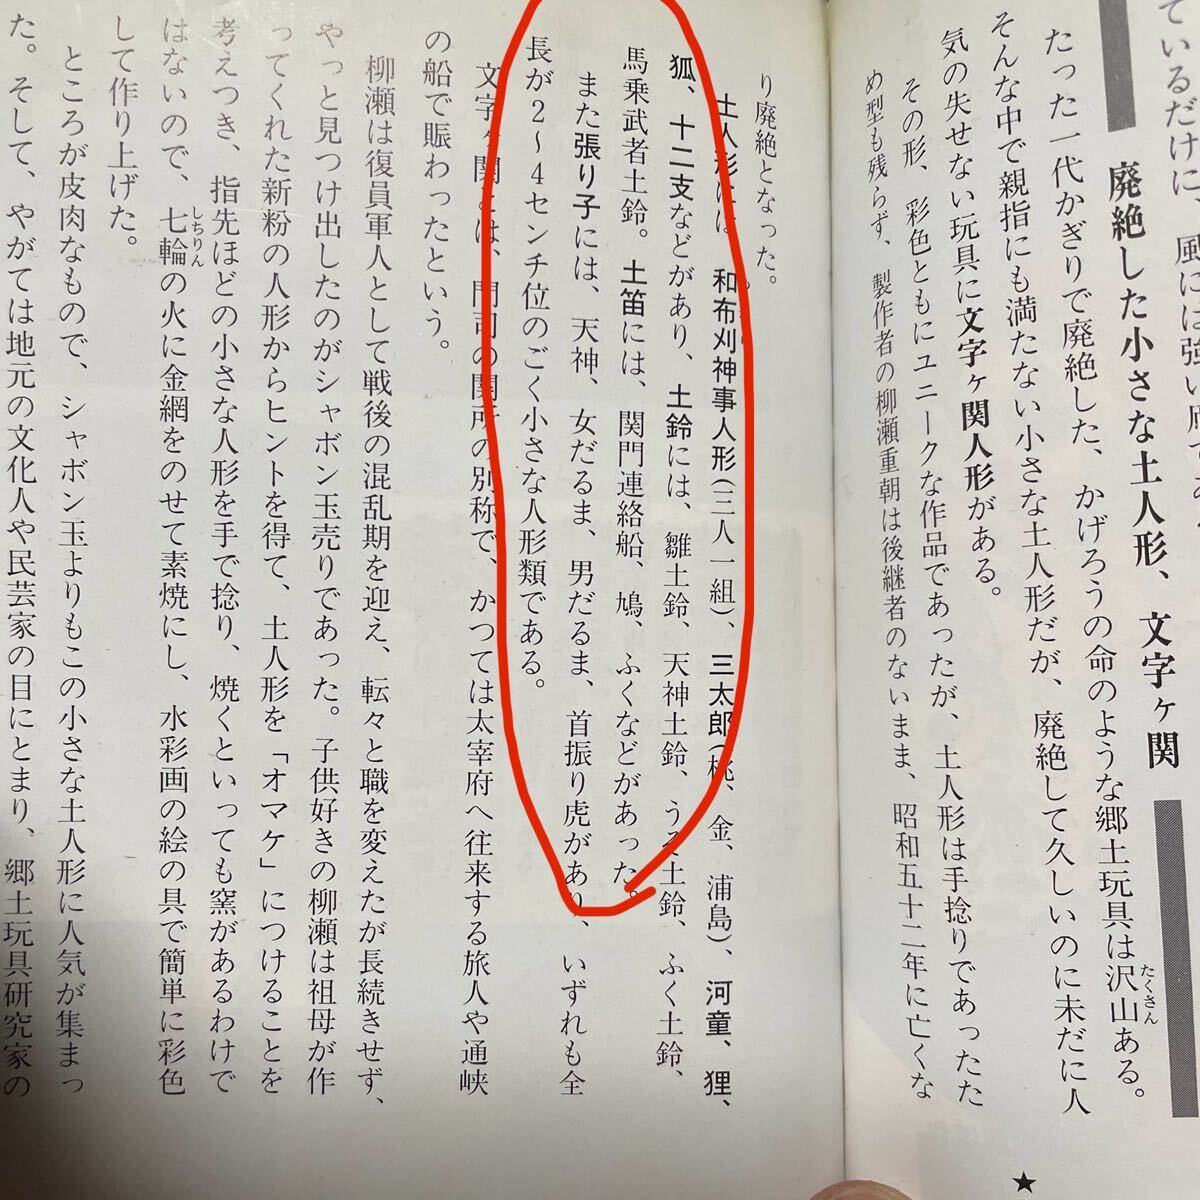 廃絶した小さな土人形、文字ヶ関
たった一代かぎりで廃絶した、かげろうの命のような郷土玩具は沢山ある。
たくさん
そんな中で親指にも満たない小さな土人形だが、廃絶して久しいのに未だに人
気の失せない玩具に文字ヶ関人形がある。
その形、彩色ともにユニークな作品であったが、土人形は手捻りであったた
め型も残らず、製作者の柳瀬重朝は後継者のないまま、昭和五十二年に亡くな
★
り廃絶となった。
土人形には、和布刈神事人形(三人一組)、三太郎(桃、金、浦島)、河童、狸、
狐、十二支などがあり、土鈴には、雛土鈴、天神土鈴、うそ土鈴、ふく土鈴、
馬乗武者土鈴。土笛には、関門連絡船、鳩、ふくなどがあった。
また張り子には、天神、女だるま、男だるま、首振り虎があり、いずれも全
長が2〜4センチ位のごく小さな人形類である。
文字ヶ関とは、門司の関所の別称で、かつては太宰府へ往来する旅人や通峡
の船で賑わったという。
柳瀬は復員軍人として戦後の混乱期を迎え、転々と職を変えたが長続きせず、
やっと見つけ出したのがシャボン玉売りであった。子供好きの柳瀬は祖母が作
ってくれた新粉の人形からヒントを得て、土人形を「オマケ」につけることを
考えつき、指先ほどの小さな人形を手で捻り、焼くといっても窯があるわけで
はないので、七輪の火に金網をのせて素焼にし、水彩画の絵の具で簡単に彩色
しちりん
して作り上げた。
ところが皮肉なもので、シャボン玉よりもこの小さな土人形に人気が集まっ
た。そして、やがては地元の文化人や民芸家の目にとまり、郷土玩具研究家の